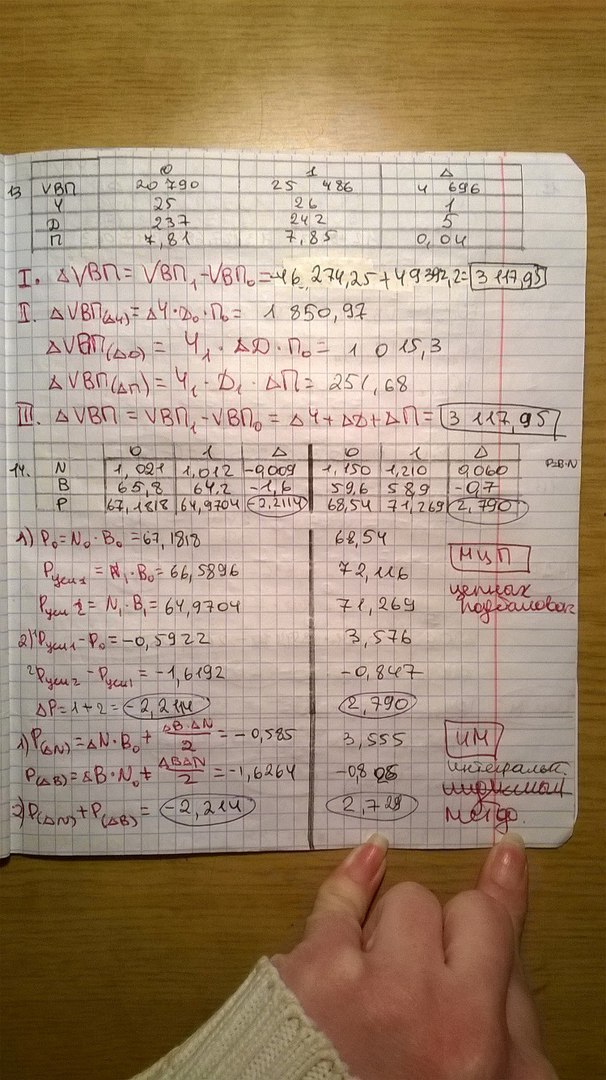 0 1 Δ
13 VВП 20 790 25 486 4 696
Ч 25 26 1
Д 237 242 5
П 7,81 7,85 0,04
I. ΔVВП = VВП₁-VВП₀ = -46 274,25 + 49392,2 = 3 117,95
II. ΔVВП(ΔЧ) = ΔЧ·Д₀·П₀ = 1 850,97
ΔVВП(ΔД) = Ч₁·ΔД·П₀ = 1 015,3
ΔVВП(ΔП) = Ч₁·Д₁·ΔП = 251,68
III. ΔVВП = VВП₁-VВП₀ = ΔЧ+ΔД+ΔП = 3 117,95
0 1 Δ 0 1 Δ
14. N 1,021 1,012 -0,009 1,150 1,210 0,060 P=B·N
B 65,8 64,2 -1,6 59,6 58,9 -0,7
P 67,1818 64,9704 -2,2114 68,54 71,269 2,790
1) P₀ = N₀·B₀ = 67,1818 68,54
Pусл1 = N₁·B₀ = 66,5896 72,116 МЦП
Pусл2 = N₁·B₁ = 64,9704 71,269 цепных
2) ¹Pусл1 - P₀ = -0,5922 3,576
²Pусл2 - Pусл1 = -1,6192 -0,847
ΔP = 1+2 = -2,2114 2,790
1) P(ΔN) = ΔN·B₀ + ΔB·ΔN/2 = -0,585 3,555 ИМ
P(ΔB) = ΔB·N₀ + ΔBΔN/2 = -1,6264 -0,826 интегральн.
2) P(ΔN) + P(ΔB) = -2,214 2,729 метдо.